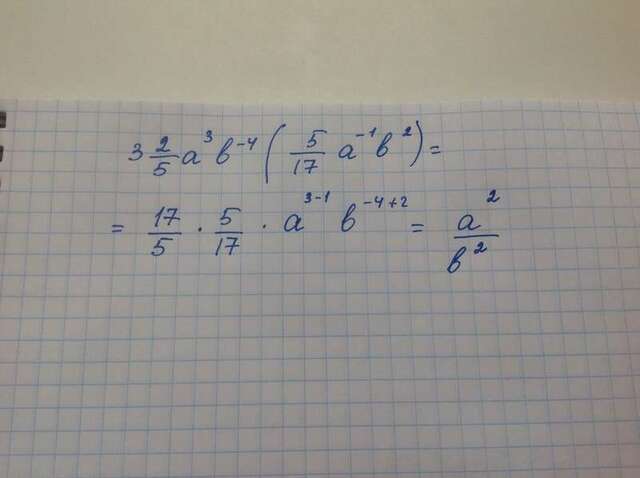 3 2/5 a³ b⁻⁴ ( 5/17 a⁻¹ b² ) =
= 17/5 · 5/17 · a³⁻¹ b⁻⁴⁺² = a²/b²